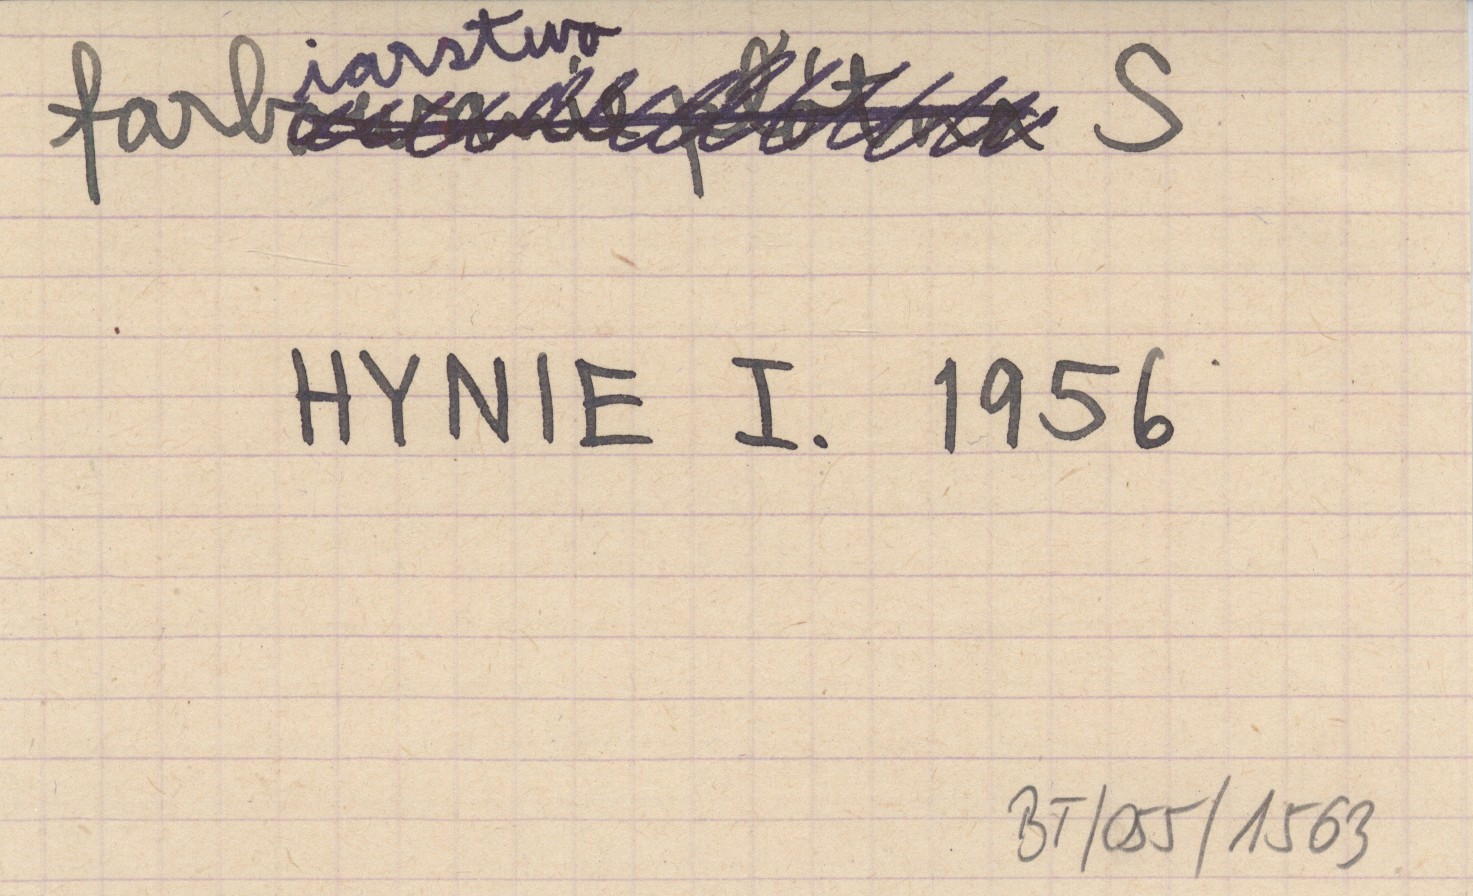 farbiarstwo S
HYNIE I. 1956
BT/055/1563